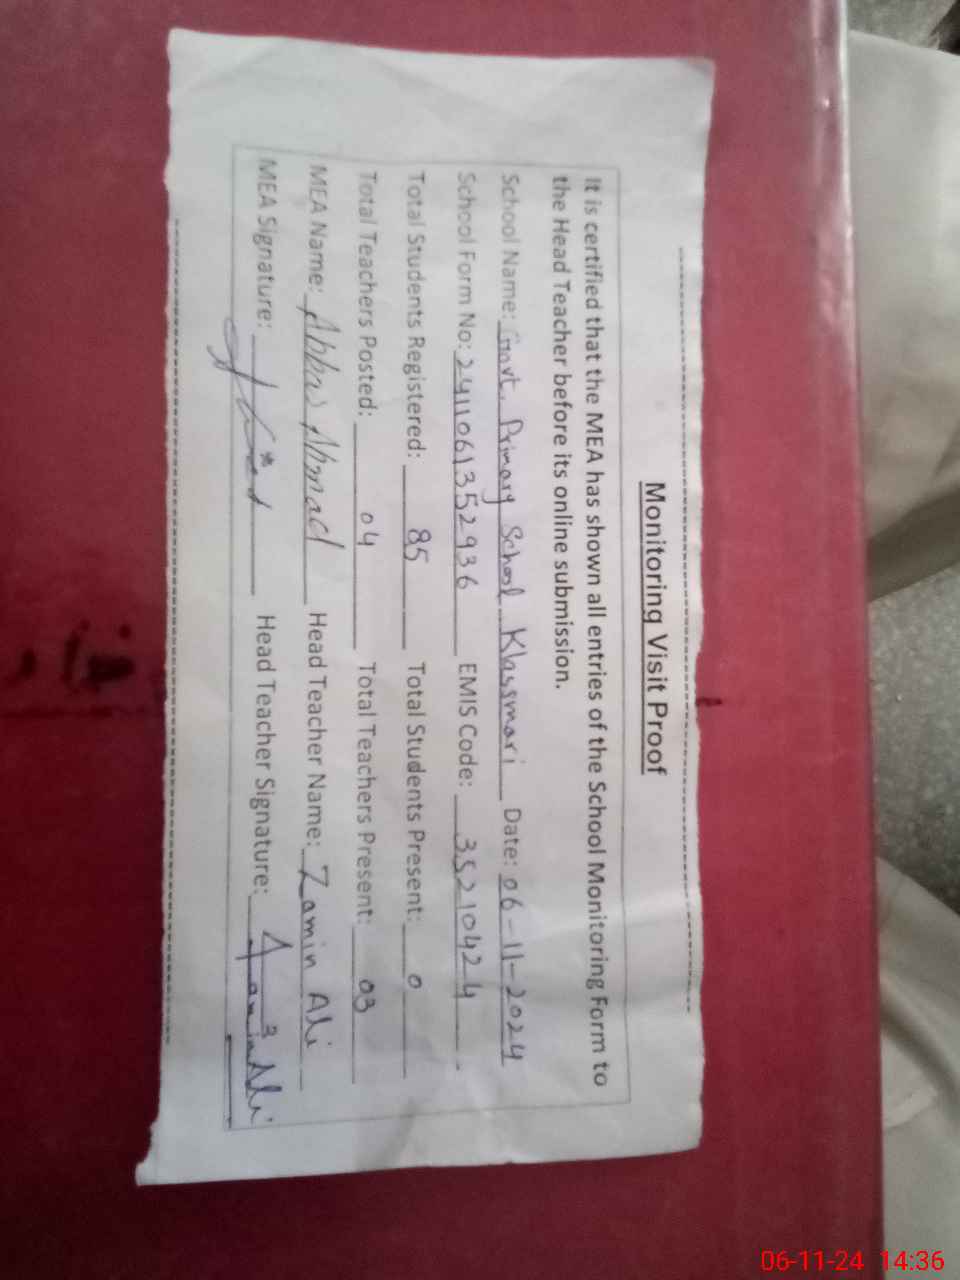 Monitoring Visit Proof
It is certified that the MEA has shown all entries of the School Monitoring Form to
the Head Teacher before its online submission.
School Name: Govt. Primary School Klasmari Date: 06-11-2024
School Form No: 2411061352936 EMIS Code: 35210424
Total Students Registered: 85 Total Students Present: 0
Total Teachers Posted: 04 Total Teachers Present: 03
MEA Name: Abbas Ahmad Head Teacher Name: Zamin Ali
MEA Signature: Head Teacher Signature: Zamin Ali
06-11-24 14:36